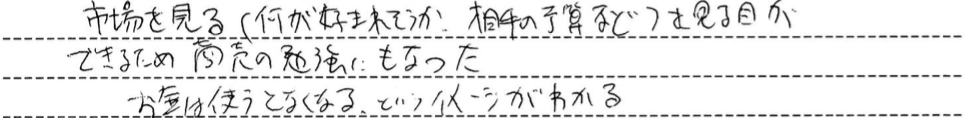 市場を見る(何が好まれてるか、相手の予算など)を見る目が
できるため商売の勉強にもなった
お金は使うとなくなる、というイメージがわかる